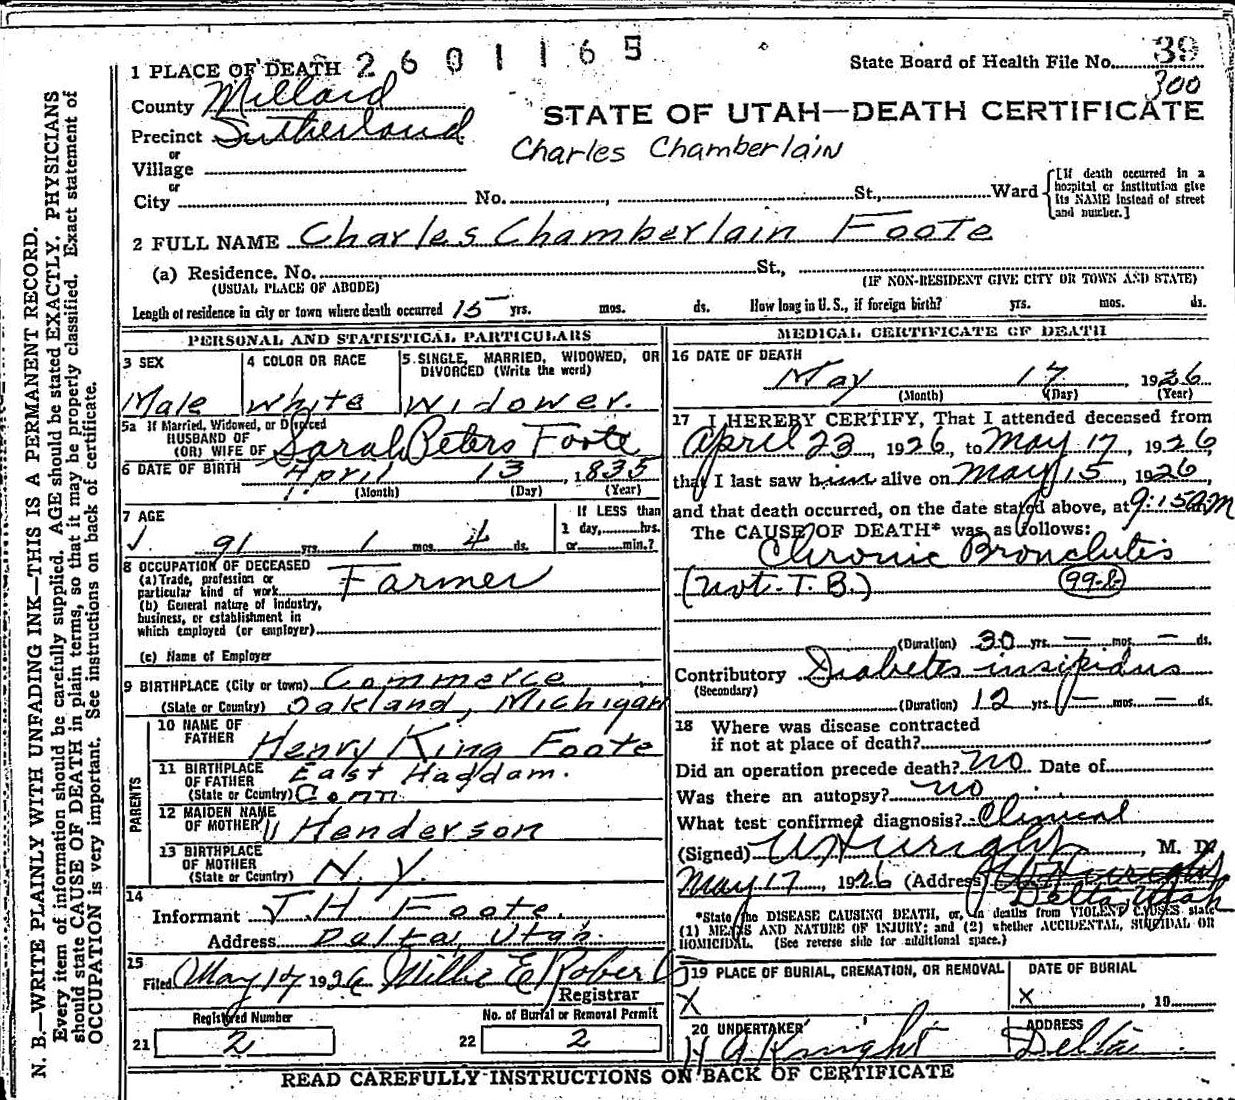 1 PLACE OF DEATH 2601165
State Board of Health File No. 39
300
County Millard
STATE OF UTAH—DEATH CERTIFICATE
Precinct Sutherland
Charles Chamberlain
or
Village
or
City No. , St., Ward [If death occurred in a hospital or institution give its NAME instead of street and number.]
2 FULL NAME Charles Chamberlain Foote
(a) Residence. No. St.,
(USUAL PLACE OF ABODE) (IF NON-RESIDENT GIVE CITY OR TOWN AND STATE)
Length of residence in city or town where death occurred 15 yrs. mos. ds. How long in U. S., if foreign birth? yrs. mos. ds.
PERSONAL AND STATISTICAL PARTICULARS
3 SEX
Male
4 COLOR OR RACE
White
5 SINGLE, MARRIED, WIDOWED, OR
DIVORCED (Write the word)
Widower.
5a If Married, Widowed, or Divorced
HUSBAND OF
(OR) WIFE OF Sarah Peters Foote
6 DATE OF BIRTH April 13, 1835
(Month) (Day) (Year)
7 AGE
91 yrs. 1 mos. 4 ds.
If LESS than
1 day, hrs.
or min.?
8 OCCUPATION OF DECEASED
(a) Trade, profession or
particular kind of work Farmer
(b) General nature of industry,
business, or establishment in
which employed (or employer)
(c) Name of Employer
9 BIRTHPLACE (City or town) Commerce
(State or Country) Oakland, Michigan
PARENTS
10 NAME OF
FATHER Henry King Foote
11 BIRTHPLACE
OF FATHER East Haddam.
(State or Country) Conn
12 MAIDEN NAME
OF MOTHER Henderson
13 BIRTHPLACE
OF MOTHER
(State or Country) N. Y.
14
Informant J. H. Foote.
Address Delta, Utah.
15
Filed May 17 1926 Millie E Roberts
Registrar
Registered Number
21 2
No. of Burial or Removal Permit
22 2
MEDICAL CERTIFICATE OF DEATH
16 DATE OF DEATH
May 17, 1926
(Month) (Day) (Year)
17 I HEREBY CERTIFY, That I attended deceased from
April 23, 1926, to May 17, 1926,
that I last saw him alive on May 15, 1926,
and that death occurred, on the date stated above, at 9:15 AM
The CAUSE OF DEATH* was as follows:
Chronic Bronchitis
(not. T. B.) 99-b
(Duration) 30 yrs. — mos. — ds.
Contributory Diabetes insipidus
(Secondary)
(Duration) 12 yrs. — mos. — ds.
18 Where was disease contracted
if not at place of death?
Did an operation precede death? no Date of
Was there an autopsy? no
What test confirmed diagnosis? Clinical
(Signed) , M. D.
May 17, 1926 (Address)
Delta Utah
*State the DISEASE CAUSING DEATH, or, in deaths from VIOLENT CAUSES state
(1) MEANS AND NATURE OF INJURY; and (2) whether ACCIDENTAL, SUICIDAL OR
HOMICIDAL. (See reverse side for additional space.)
19 PLACE OF BURIAL, CREMATION, OR REMOVAL
X
DATE OF BURIAL
X , 19
20 UNDERTAKER
Knight
ADDRESS
Delta
READ CAREFULLY INSTRUCTIONS ON BACK OF CERTIFICATE
N. B.—WRITE PLAINLY WITH UNFADING INK—THIS IS A PERMANENT RECORD.
Every item of information should be carefully supplied. AGE should be stated EXACTLY. PHYSICIANS
should state CAUSE OF DEATH in plain terms, so that it may be properly classified. Exact statement of
OCCUPATION is very important. See instructions on back of certificate.